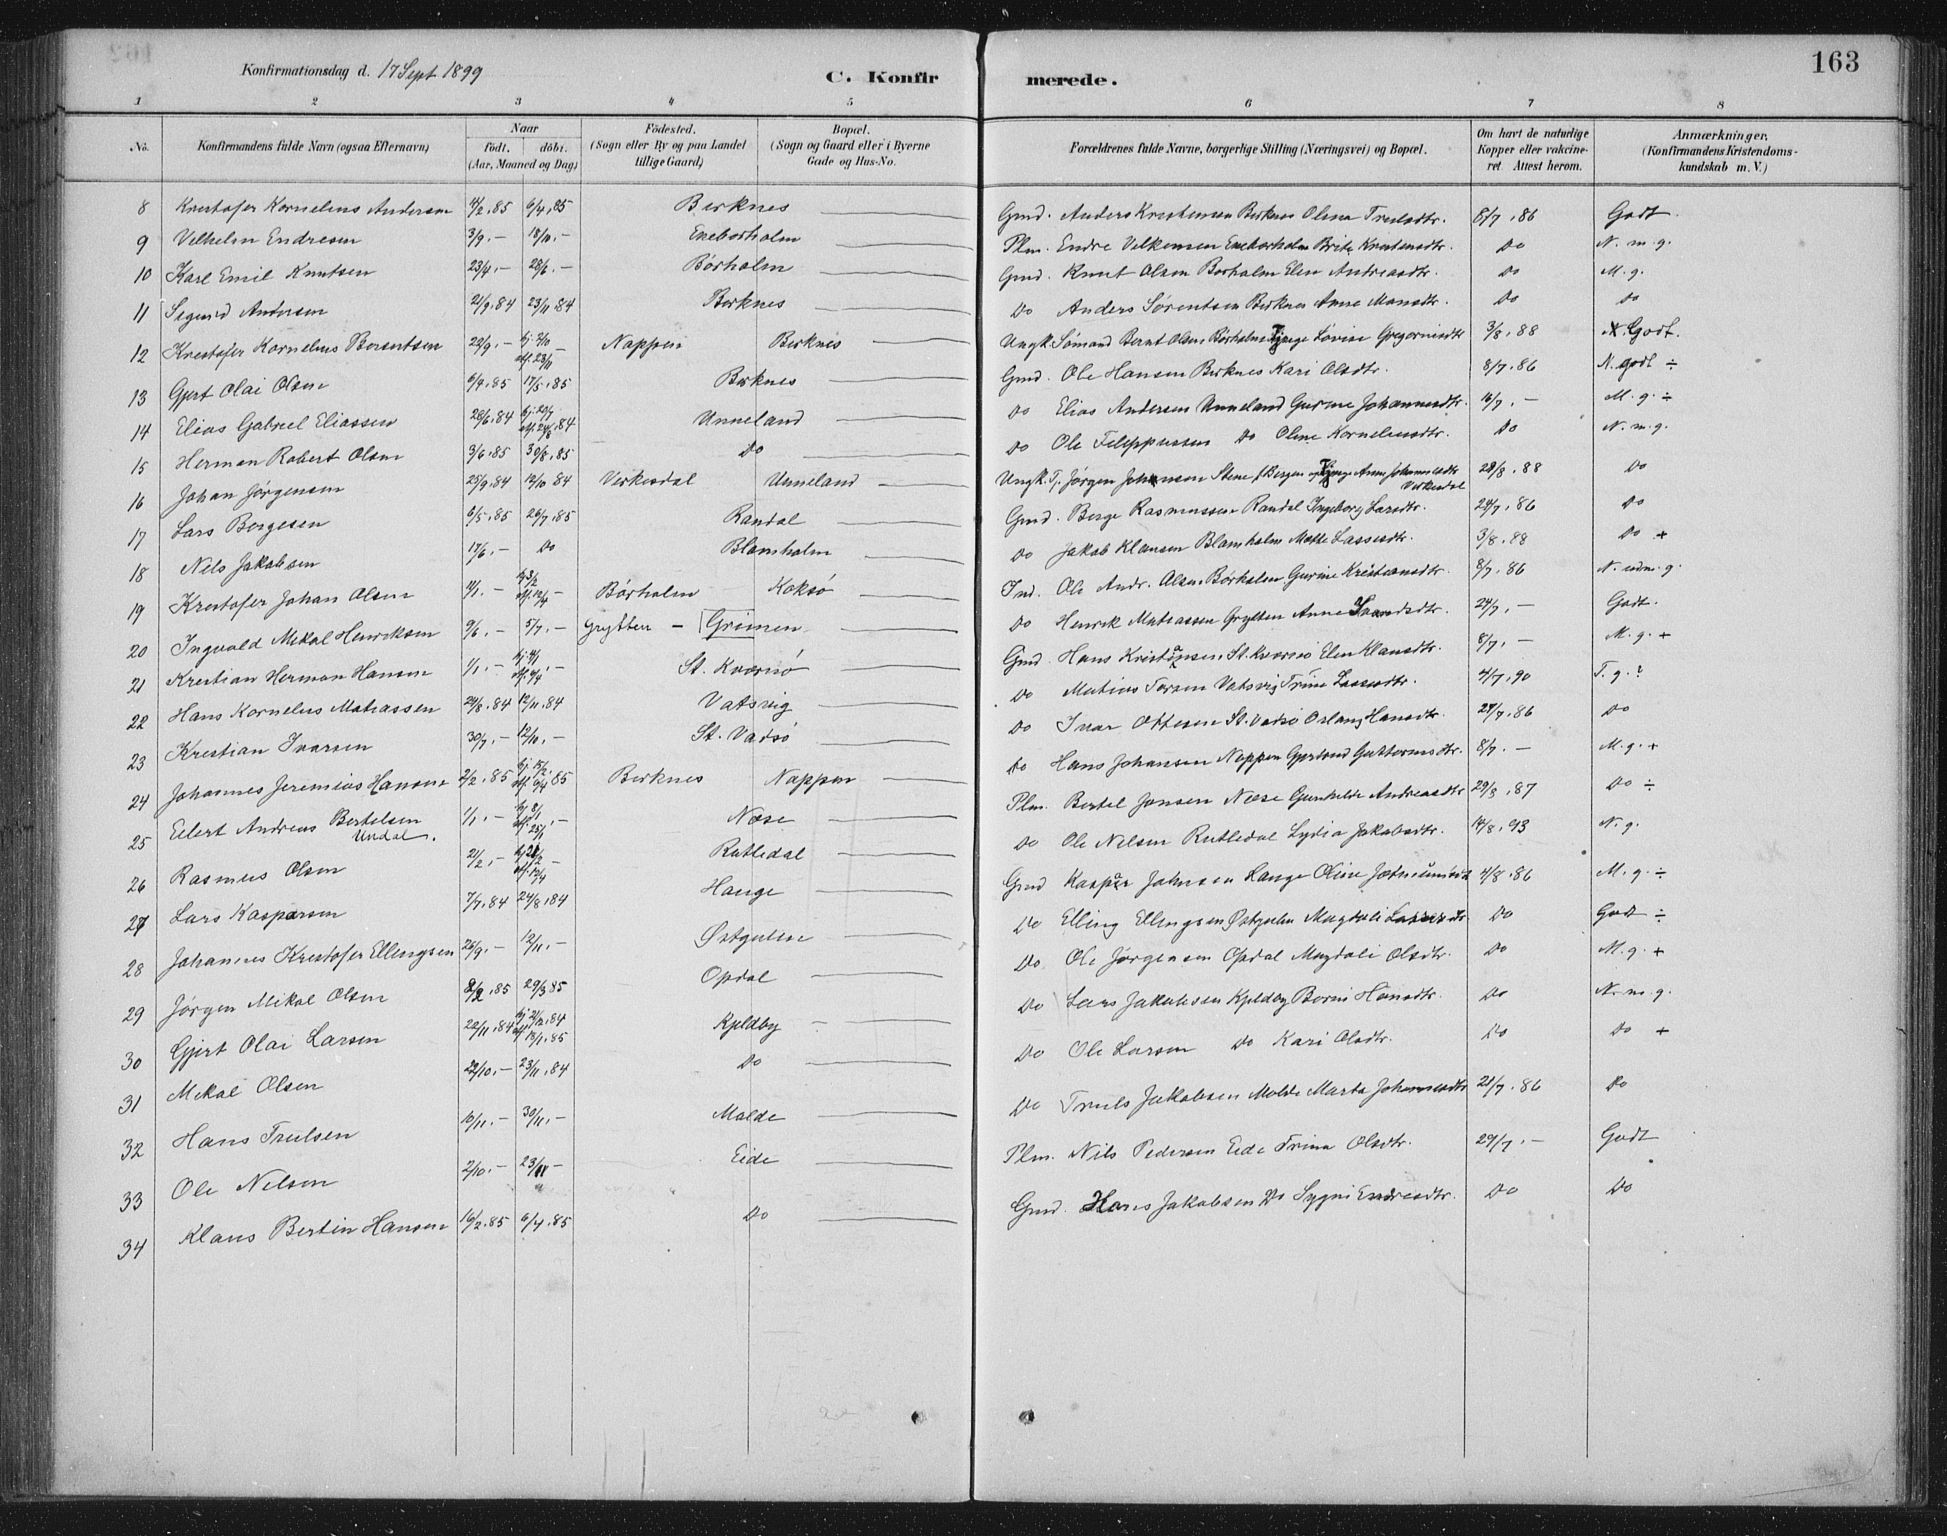 163
Konfirmationsdag d. 17 Sept 1899
C. Konfir merede.
1 2 3 4 5 6 7 8
No. Konfirmandens fulde Navn (ogsaa Efternavn) Naar født. døbt. (Aar, Maaned og Dag) Fødested. (Sogn eller By og paa Landet tillige Gaard) Bopæl. (Sogn og Gaard eller i Byerne Gade og Hus-No. Forældrenes fulde Navne, borgerlige Stilling (Næringsvei) og Bopæl. Om havt de naturlige Kopper eller vakcineret Attest herom. Anmærkninger. (Konfirmandens Kristendomskundskab m. V.)
8 Kristofer Kornelius Andersen 4/2.85 6/4.85 Birknes Gmd. Anders Kristensen Birknes Olina Trulsdtr. 8/7.86 Godt
9 Vilhelm Endresen 3/9.- 18/10.- Eneborholm Plm. Endre Velkensen Eneborholm Brite Kristensdtr. Do N. m. g.
10 Karl Emil Knutsen 23/4.- 28/6.- Börholm Gmd. Knut Olsen Börholm Elen Andreasdtr. Do M. g.
11 Sigurd Andersen 21/9.84 23/11.84 Birknes Do Anders Sörentsen Birknes Anne Monsdtr. Do Do
12 Kristofer Kornelius Berentsen 22/9.- hj. 2/10 stf. 23/11 - Nappen Birknes Ungk. Sömand Bernt Olsen Börholm Pige Lovise Gregoriusdtr 3/8.88 Godt.
13 Gjert Olai Olsen 6/4.85 17/5.85 Birknes Gmd. Ole Hansen Birknes Kari Olsdtr. 8/7.86 N. godt ÷
14 Elias Gabriel Eliassen 28/6.84 hj. 20/7 stf. 24/8.84 Unneland Do Elias Andersen Unneland Gurine Johannesdtr. 16/7.- M. g. ÷
15 Herman Robert Olsen 3/6.85 30/8.85 Do Do Ole Filippussen Do Oline Korneliusdtr. Do N. m. g.
16 Johan Jörgensen 25/9.84 12/10 84 Virkesdal Unneland Ungk. Tj. Jörgen Johansen Stene Bergen og Pige Anne Johannesdtr Virkesdal 28/8.88 Do
17 Lars Börgesen 6/5.85 26/7.85 Randal Gmd. Berge Rasmussen Randal Ingeborg Larsdtr. 24/7.86 Do
18 Nils Jakobsen 17/6.- Do Blamholm Do Jakob Klausen Blamholm Mette Lassesdtr. 3/8.88 Do +
19 Kristofer Johan Olsen 1/1.- hj. 3/2 stf. 12/4 - Börholm Koksö Ind. Ole Andr. Olsen Börholm Gurine Kristensdtr. 8/7.86 N. udm. g.
20 Ingvald Mikal Henriksen 9/6.- 5/7.- Grytten - Grimen Do Henrik Matiassen Grytten Anne 24/7.- Godt.
21 Kristian Herman Hansen 1/1.- hj. 4/1 stf. 6/4.- St. Kværnö Gmd. Hans Kristensen St. Kværnö Elen Klausdtr. 8/7.- M. g. +
22 Hans Kornelius Matiassen 24/8.84 12/11.84 Vatsvig Do Matias Larsen Vatsvig Trine Lassesdtr. 4/7.90 T. g. ?
23 Kristian Ivarsen 30/7.- 12/10.- St. Vadsö Do Ivar Ottesen St. Vadsö Oslaug Hansdtr. 27/7.86 Do
24 Johannes Jeremias Hansen 2/2.85 hj. 15/2 stf. 6/4 85 Birknes Nappen Do Hans Johansen Nappen Gjertrud Guttormsdtr. 8/7.- M. g. +
25 Eilert Andreas Bertelsen Undal. 1/1.- hj. 8/1 stf. 25/1 .- Næse Plm. Bertel Jonsen Næse Gunhilde Andreasdtr 29/8.87 Do ÷
26 Rasmus Olsen 21/2.- hj 21/2 stf. 12/4 - Rutledal Do Ole Nilsen Rutledal Lydia Jakobsdtr. 14/8.93 N. g.
27 Lars Kaspersen 7/7.84 24/8.84 Hauge Gmd Kasper Johnsen Hauge Oline 4/8.86 M. g. ÷
28 Johannes Kristofer Ellingsen 26/9.- 12/11.- Östgulen Do Elling Ellingsen Östgulen Magdali Do Godt ÷
29 Jörgen Mikal Olsen 8/2.85 29/3 85 Opdal Do Ole Jörgensen Opdal Magdali Olsdtr. Do M. g. +
30 Gjert Olai Larsen 22/11.84 hj. 21/12.84 stf. 18/1.85 Kjeldby Do Lars Jakobsen Kjeldby Borni Hansdtr. Do N. m. g.
31 Mikal Olsen 22/10.- 23/11.84 Do Do Ole Larsen Do Kari Olsdtr. Do Do +
32 Hans Trulsen 10/11.- 30/11.- Molde Do Truls Jakobsen Molde Marta Johannesdtr 21/7.86 Do
33 Ole Nilsen 2/10.- 23/11 - Eide Plm. Nils Pedersen Eide Trina Olsdtr. 29/7.- Godt
34 Klaus Bertin Hansen 16/2.85 6/4.85 Do Gmd. Hans Jakobsen Do Sygni Endresdtr. Do Do